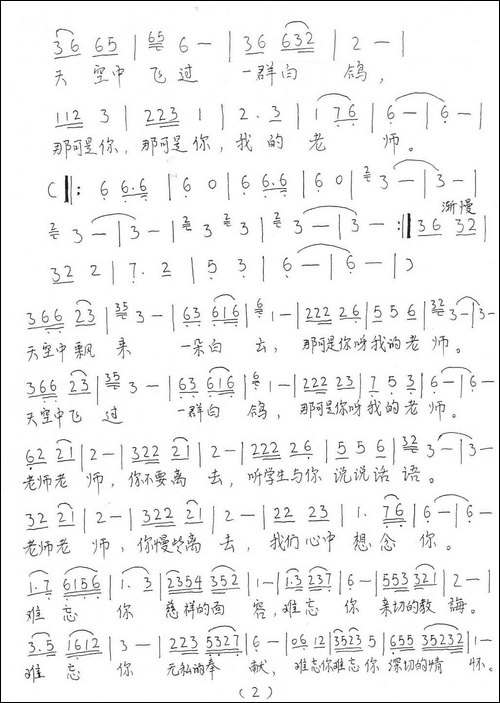 3 6 6 5 | 65 6 — | 3 6 6 3 2 | 2 — |
天 空中 飞 过 一群白 鸽，
1 1 2 3 | 2 2 3 1 | 2 . 3 | 1 7 6 | 6 — | 6 — |
那可是你，那可是你，我 的 老 师。
( ‖: 6 6.6 | 6 0 | 6 6.6 | 6 0 | 2 3 — | 3 — |
渐慢
2 3 — | 3 — | 2 3 2 3 | 2 3 — | 3 — :‖ 3 6 3 2 |
3 2 2 | 7 . 2 | 5 3 | 6 — | 6 — | )
3 6 6 2 3 | 35 3 — | 6 3 6 1 6 | 6 1 — | 2 2 2 2 6 | 5 5 6 | 32 3 — | 3 —
天空中飘 来 一朵白 云，那可是你呀我的老 师。
3 6 6 2 3 | 35 3 — | 6 3 6 1 6 | 6 1 — | 2 2 2 2 3 | 7 5 3 | 6 — | 6 —
天空中飞 过 一群白 鸽，那可是你呀我的老 师。
6 2 2 1 | 2 — | 3 2 2 2 1 | 2 — | 2 2 2 2 6 | 5 5 6 | 32 3 — | 3 —
老师老 师，你不要离 去，听学生与你 说说话 语。
3 2 2 1 | 2 — | 3 2 2 2 1 | 2 — | 2 2 2 3 | 1 . 7 6 | 6 — | 6 —
老师老 师，你慢些离 去，我们心中 想 念 你。
1 . 7 6 1 5 6 | 1 . 3 | 2 3 5 4 3 5 2 | 1 — | 1.3 2 3 7 | 6 — | 5 5 3 3 2 1 | 2 — |
难 忘 你 慈祥的面 容，难忘 你 亲切的教 诲。
3 . 5 1 6 1 2 | 3 — | 2 2 3 5 3 2 7 | 6 — | 0 6 1 2 | 3 5 2 3 5 | 6 5 5 3 5 2 3 2 | 1 —
难 忘 你 无私的奉 献，难忘你难忘你 深切的情 怀。
( 2 )